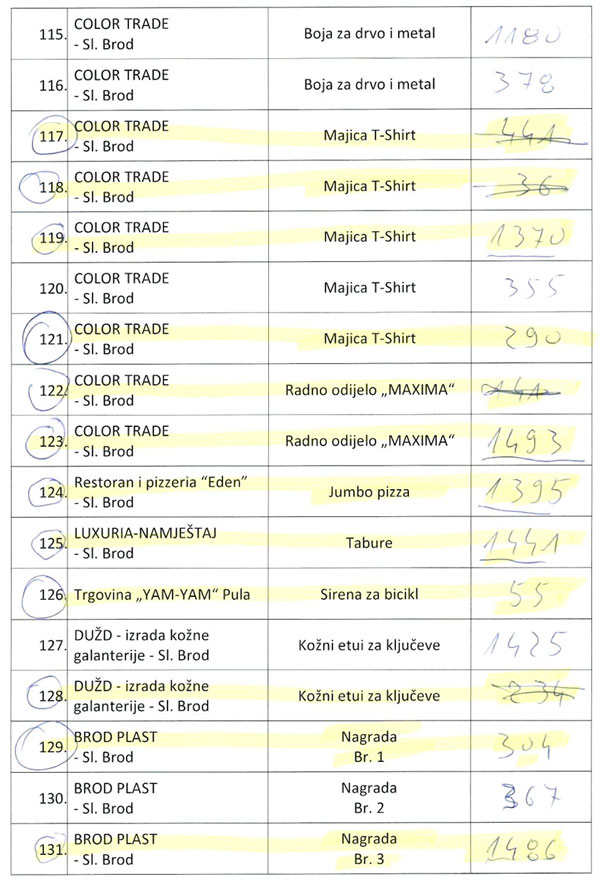 115. COLOR TRADE - Sl. Brod Boja za drvo i metal 1180
116. COLOR TRADE - Sl. Brod Boja za drvo i metal 378
117. COLOR TRADE - Sl. Brod Majica T-Shirt 441
118. COLOR TRADE - Sl. Brod Majica T-Shirt 36
119. COLOR TRADE - Sl. Brod Majica T-Shirt 1370
120. COLOR TRADE - Sl. Brod Majica T-Shirt 355
121. COLOR TRADE - Sl. Brod Majica T-Shirt 290
122. COLOR TRADE - Sl. Brod Radno odijelo „MAXIMA“ 141
123. COLOR TRADE - Sl. Brod Radno odijelo „MAXIMA“ 1493
124. Restoran i pizzeria “Eden” - Sl. Brod Jumbo pizza 1395
125. LUXURIA-NAMJEŠTAJ - Sl. Brod Tabure 1441
126. Trgovina „YAM-YAM“ Pula Sirena za bicikl 55
127. DUŽD - izrada kožne galanterije - Sl. Brod Kožni etui za ključeve 1425
128. DUŽD - izrada kožne galanterije - Sl. Brod Kožni etui za ključeve 234
129. BROD PLAST - Sl. Brod Nagrada Br. 1 304
130. BROD PLAST - Sl. Brod Nagrada Br. 2 367
131. BROD PLAST - Sl. Brod Nagrada Br. 3 1486